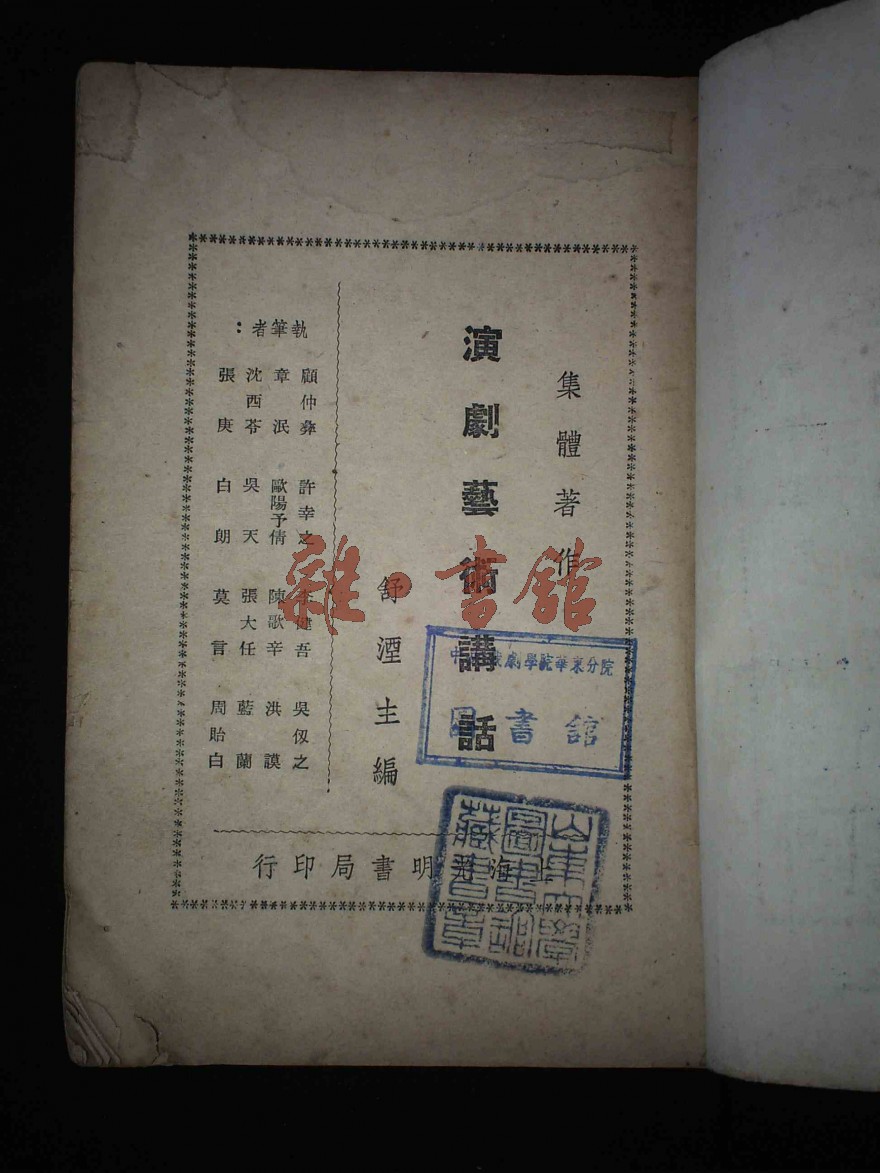 集體著作
演劇藝術講話
舒湮主編
執筆者：
顧仲彝　許幸之　李健吾　吳仞之
章泯　歐陽予倩　陳歌辛　洪謨
沈西苓　吳天　張大任　藍蘭
張庚　白朗　莫言　周貽白
上海光明書局印行
中央戲劇學院華東分院
圖書館
山東大學
圖書館
藏書章
雜·書館